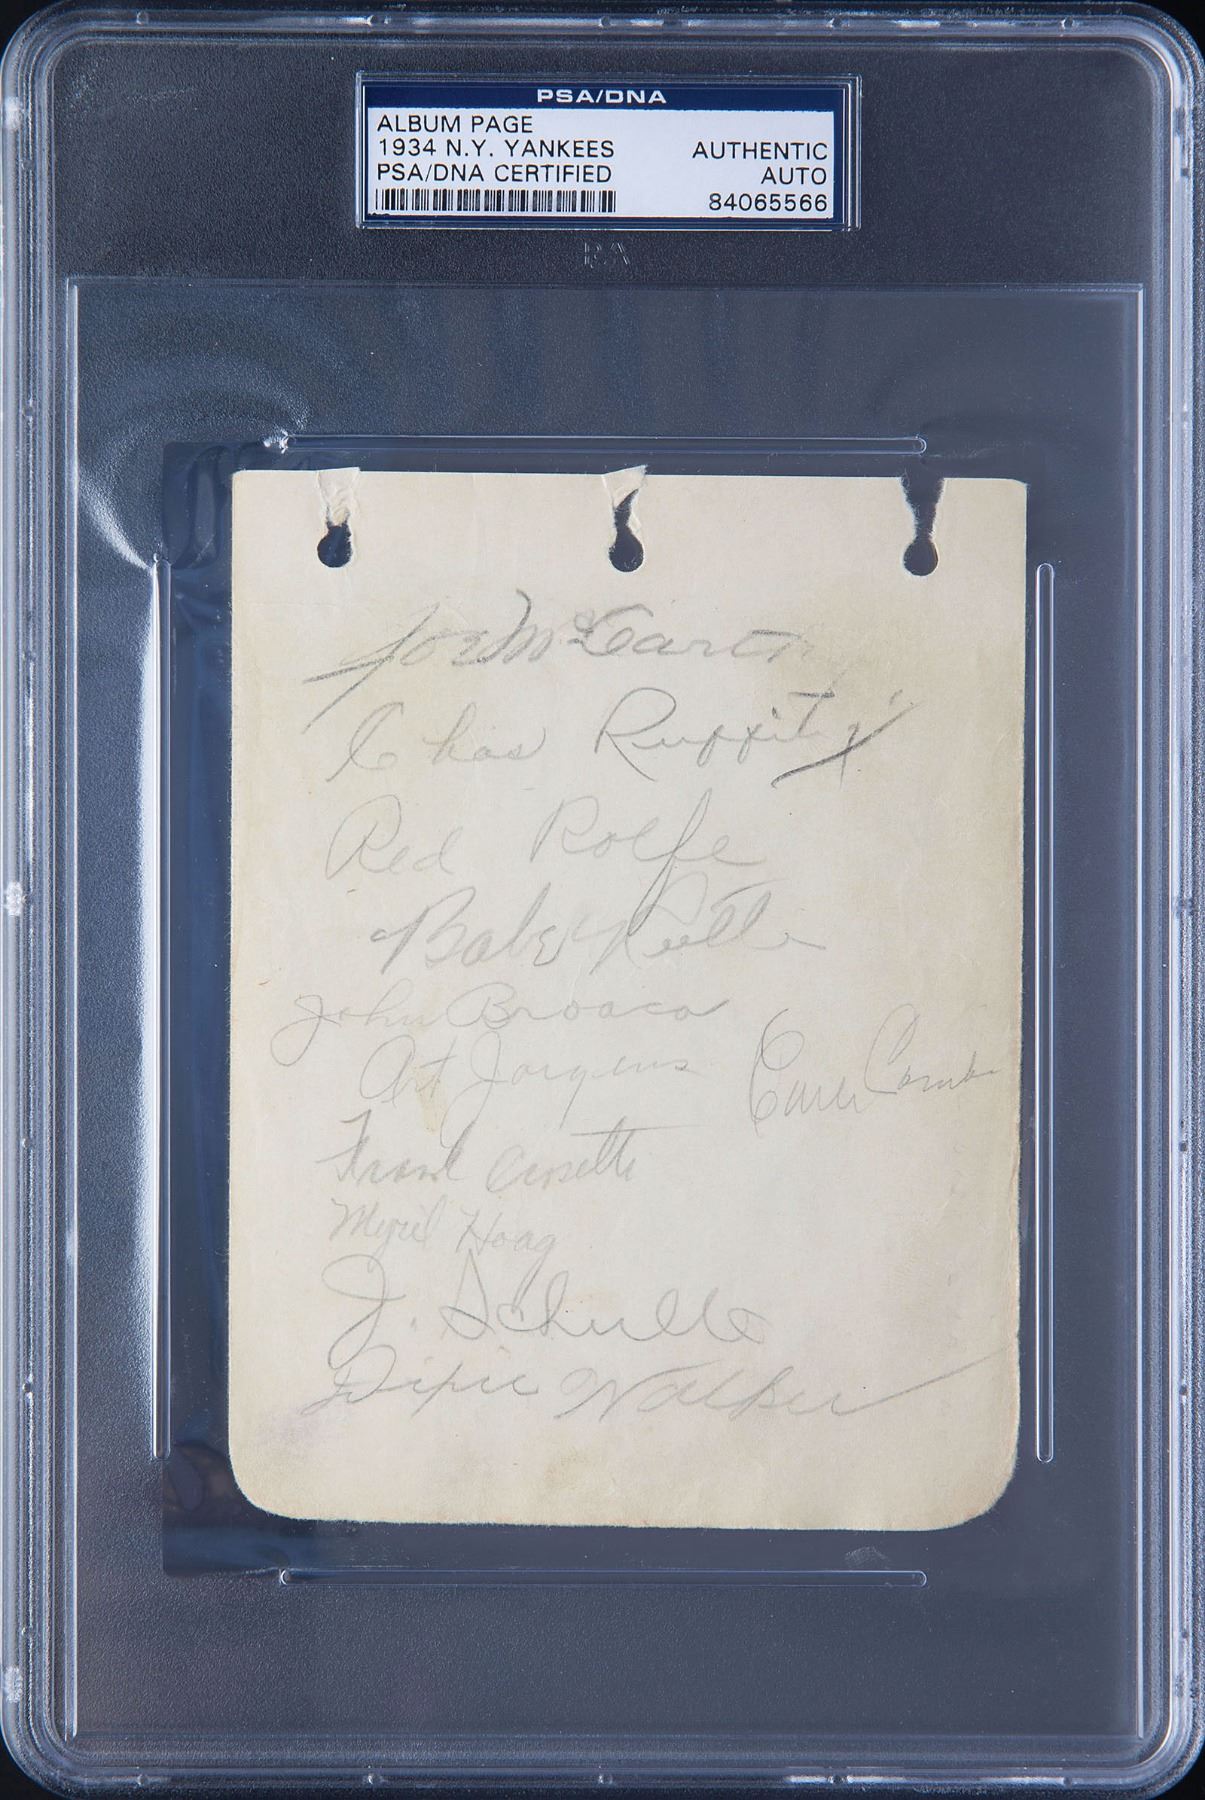 PSA/DNA
ALBUM PAGE
1934 N.Y. YANKEES
PSA/DNA CERTIFIED
AUTHENTIC
AUTO
84065566
Joe McCarthy
Chas Ruffing
Red Rolfe
Babe Ruth
John Broaca
Art Jorgens
Earle Combs
Frank Crosetti
Myril Hoag
J. Schulte
Dixie Walker